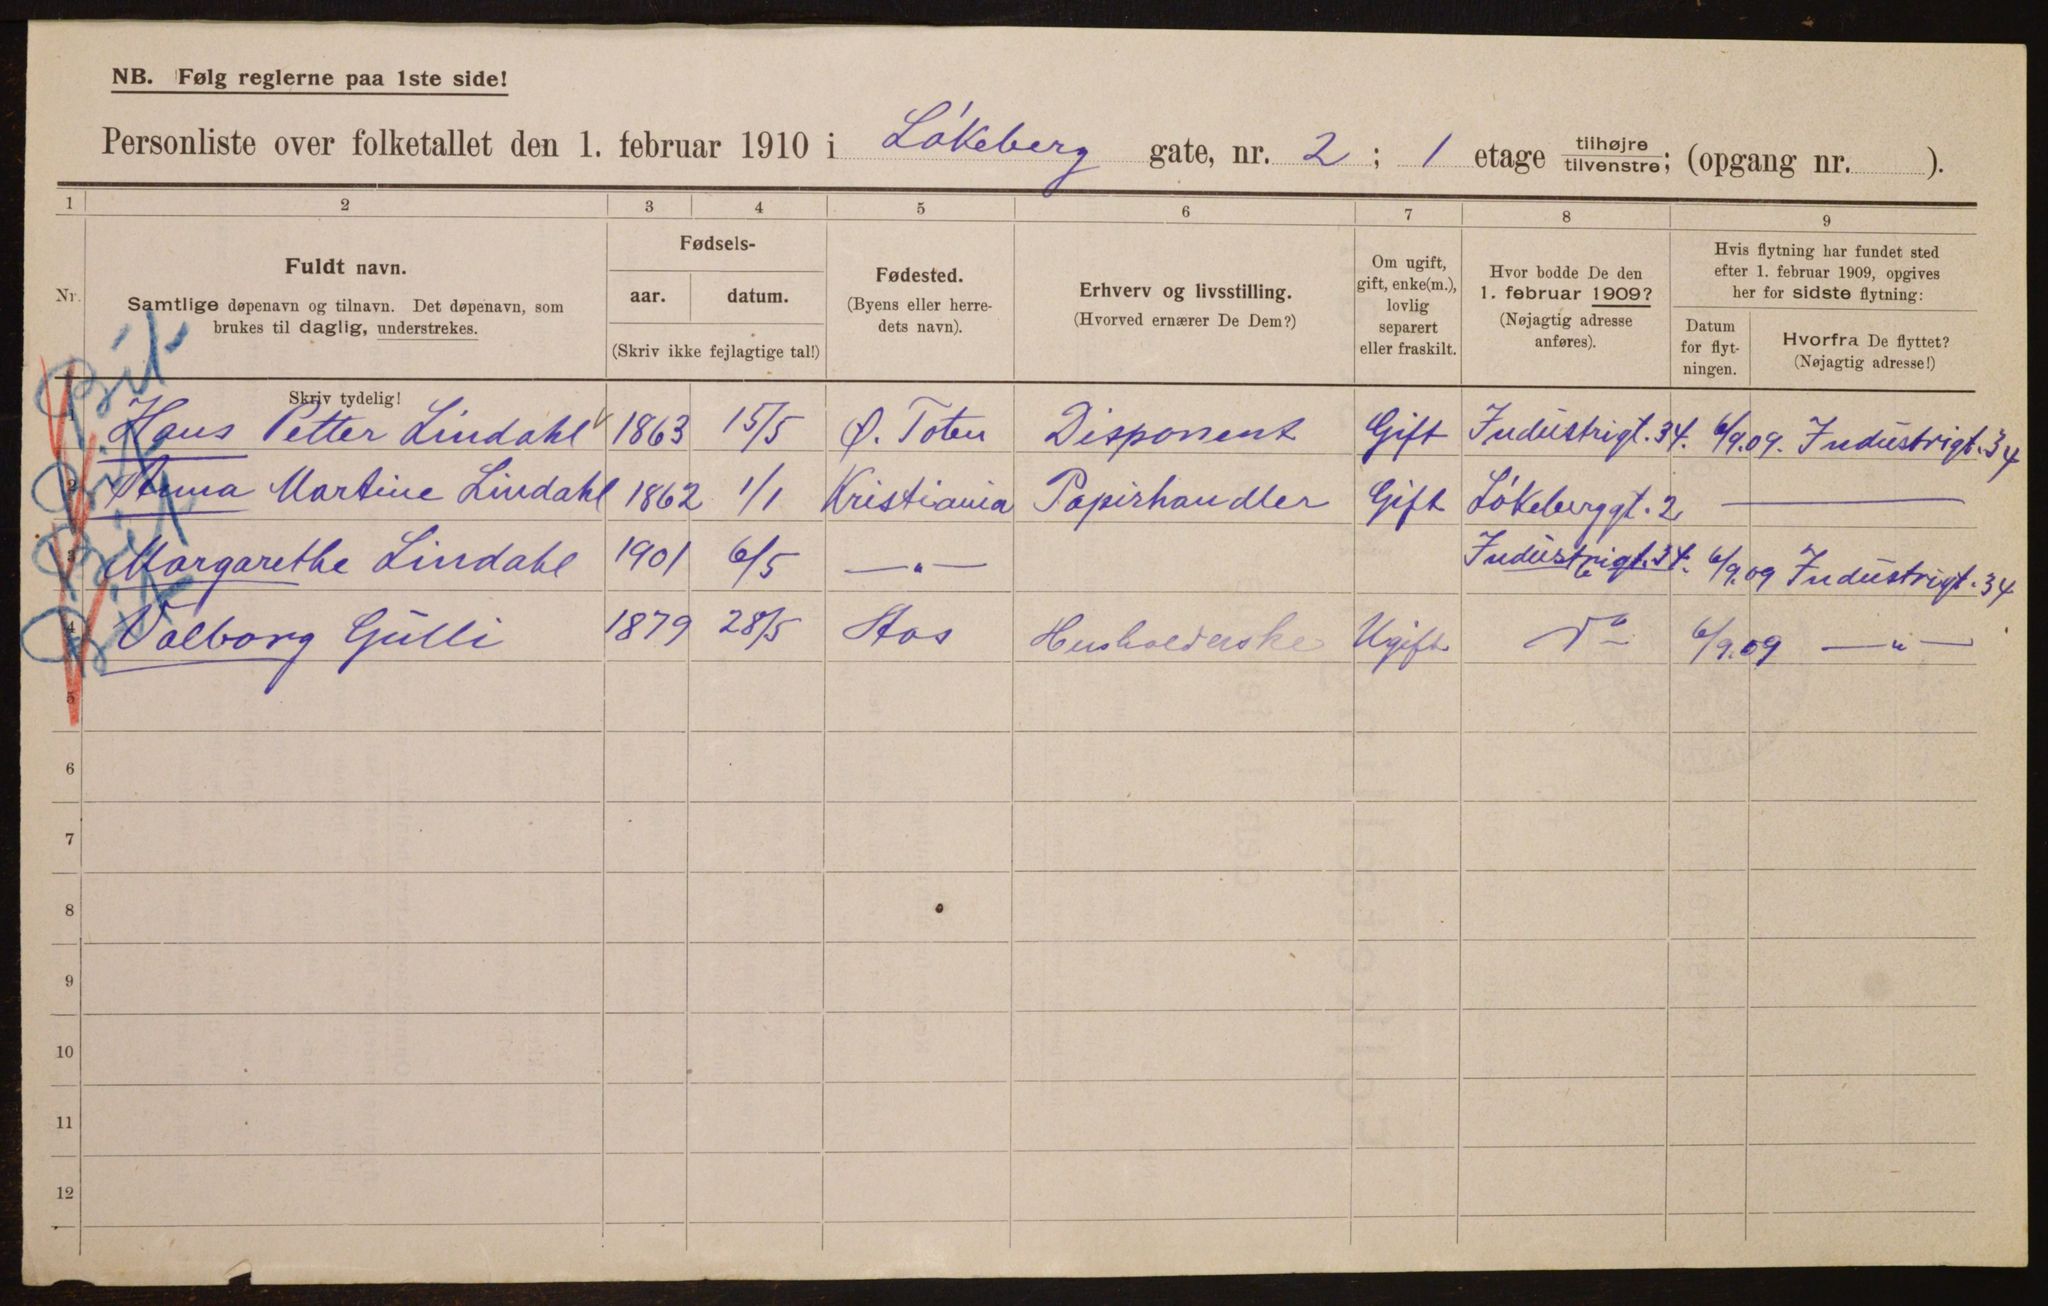 NB. Følg reglerne paa 1ste side!
Personliste over folketallet den 1. februar 1910 i Lökeberg gate, nr. 2 ; 1 etage tilhøjre/tilvenstre; (opgang nr. ).
1 2 3 4 5 6 7 8 9
Nr. Fuldt navn.
Samtlige døpenavn og tilnavn. Det døpenavn, som
brukes til daglig, understrekes.
Skriv tydelig!
Fødsels-
aar. datum.
(Skriv ikke fejlagtige tal!)
Fødested.
(Byens eller herre-
dets navn).
Erhverv og livsstilling.
(Hvorved ernærer De Dem?)
Om ugift,
gift, enke(m.),
lovlig
separert
eller fraskilt.
Hvor bodde De den
1. februar 1909?
(Nøjagtig adresse
anføres).
Hvis flytning har fundet sted
efter 1. februar 1909, opgives
her for sidste flytning:
Datum
for flyt-
ningen.
Hvorfra De flyttet?
(Nøjagtig adresse!)
1 Hans Petter Lindahl 1863 15/5 Ø. Toten Disponent Gift Industrigt. 34. 6/9.09. Industrigt. 34
2 Anna Martine Lindahl 1862 1/1 Kristiania Papirhandler Gift Lökeberggt. 2 —
3 Margarethe Lindahl 1901 6/5 — „ — Industrigt. 34. 6/9.09 Industrigt. 34
4 Valborg Gulli 1879 28/5 Husholderske Ugift Do 6/9.09 — „ —
5
6
7
8
9
10
11
12